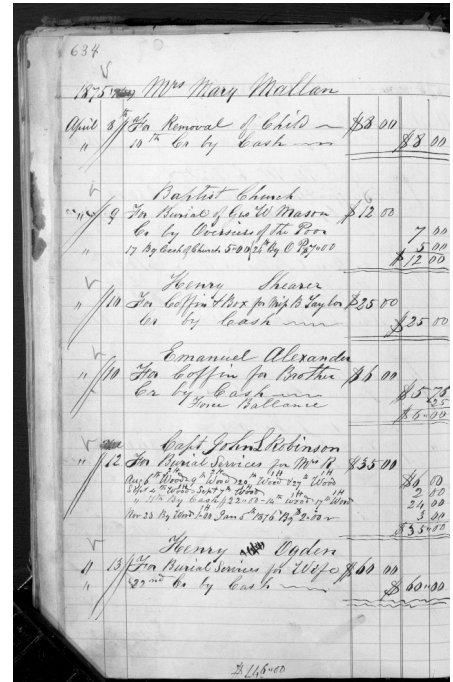 634
1875 Mrs Mary Mallan
April 8th For Removal of Child $8 00
" 10th Cr by Cash $8 00
Baptist Church
" 9 For Burial of Geo W Mason $12 00
Cr by Overseers of the Poor 7 00
" 17 By Cash of Church 5-00 24th By O P 7-00 5 00
$12 00
Henry Shearer
" 10 For Coffin & Box for Taylor $25 00
Cr by Cash $25 00
Emanuel Alexander
" 10 For Coffin for Brother $6 00
Cr by Cash $5 75
Ballance 25
$6-00
Capt John S Robinson
" 12 For Burial Services for Mrs R $35 00
Aug 6th Wood 9th Wood 20 Wood & 27th Wood $6 00
4th Wood Sept 7th Wood 2 00
" By Cash 22-00 Wood 17th Wood 24 00
Nov 23 By Wood 1-00 Jan 5th 1876 By 2-00 3 00
$35-00
Henry Ogden
" 13 For Burial Services for Wife $60 00
" 22nd Cr by Cash $60-00
$146-00